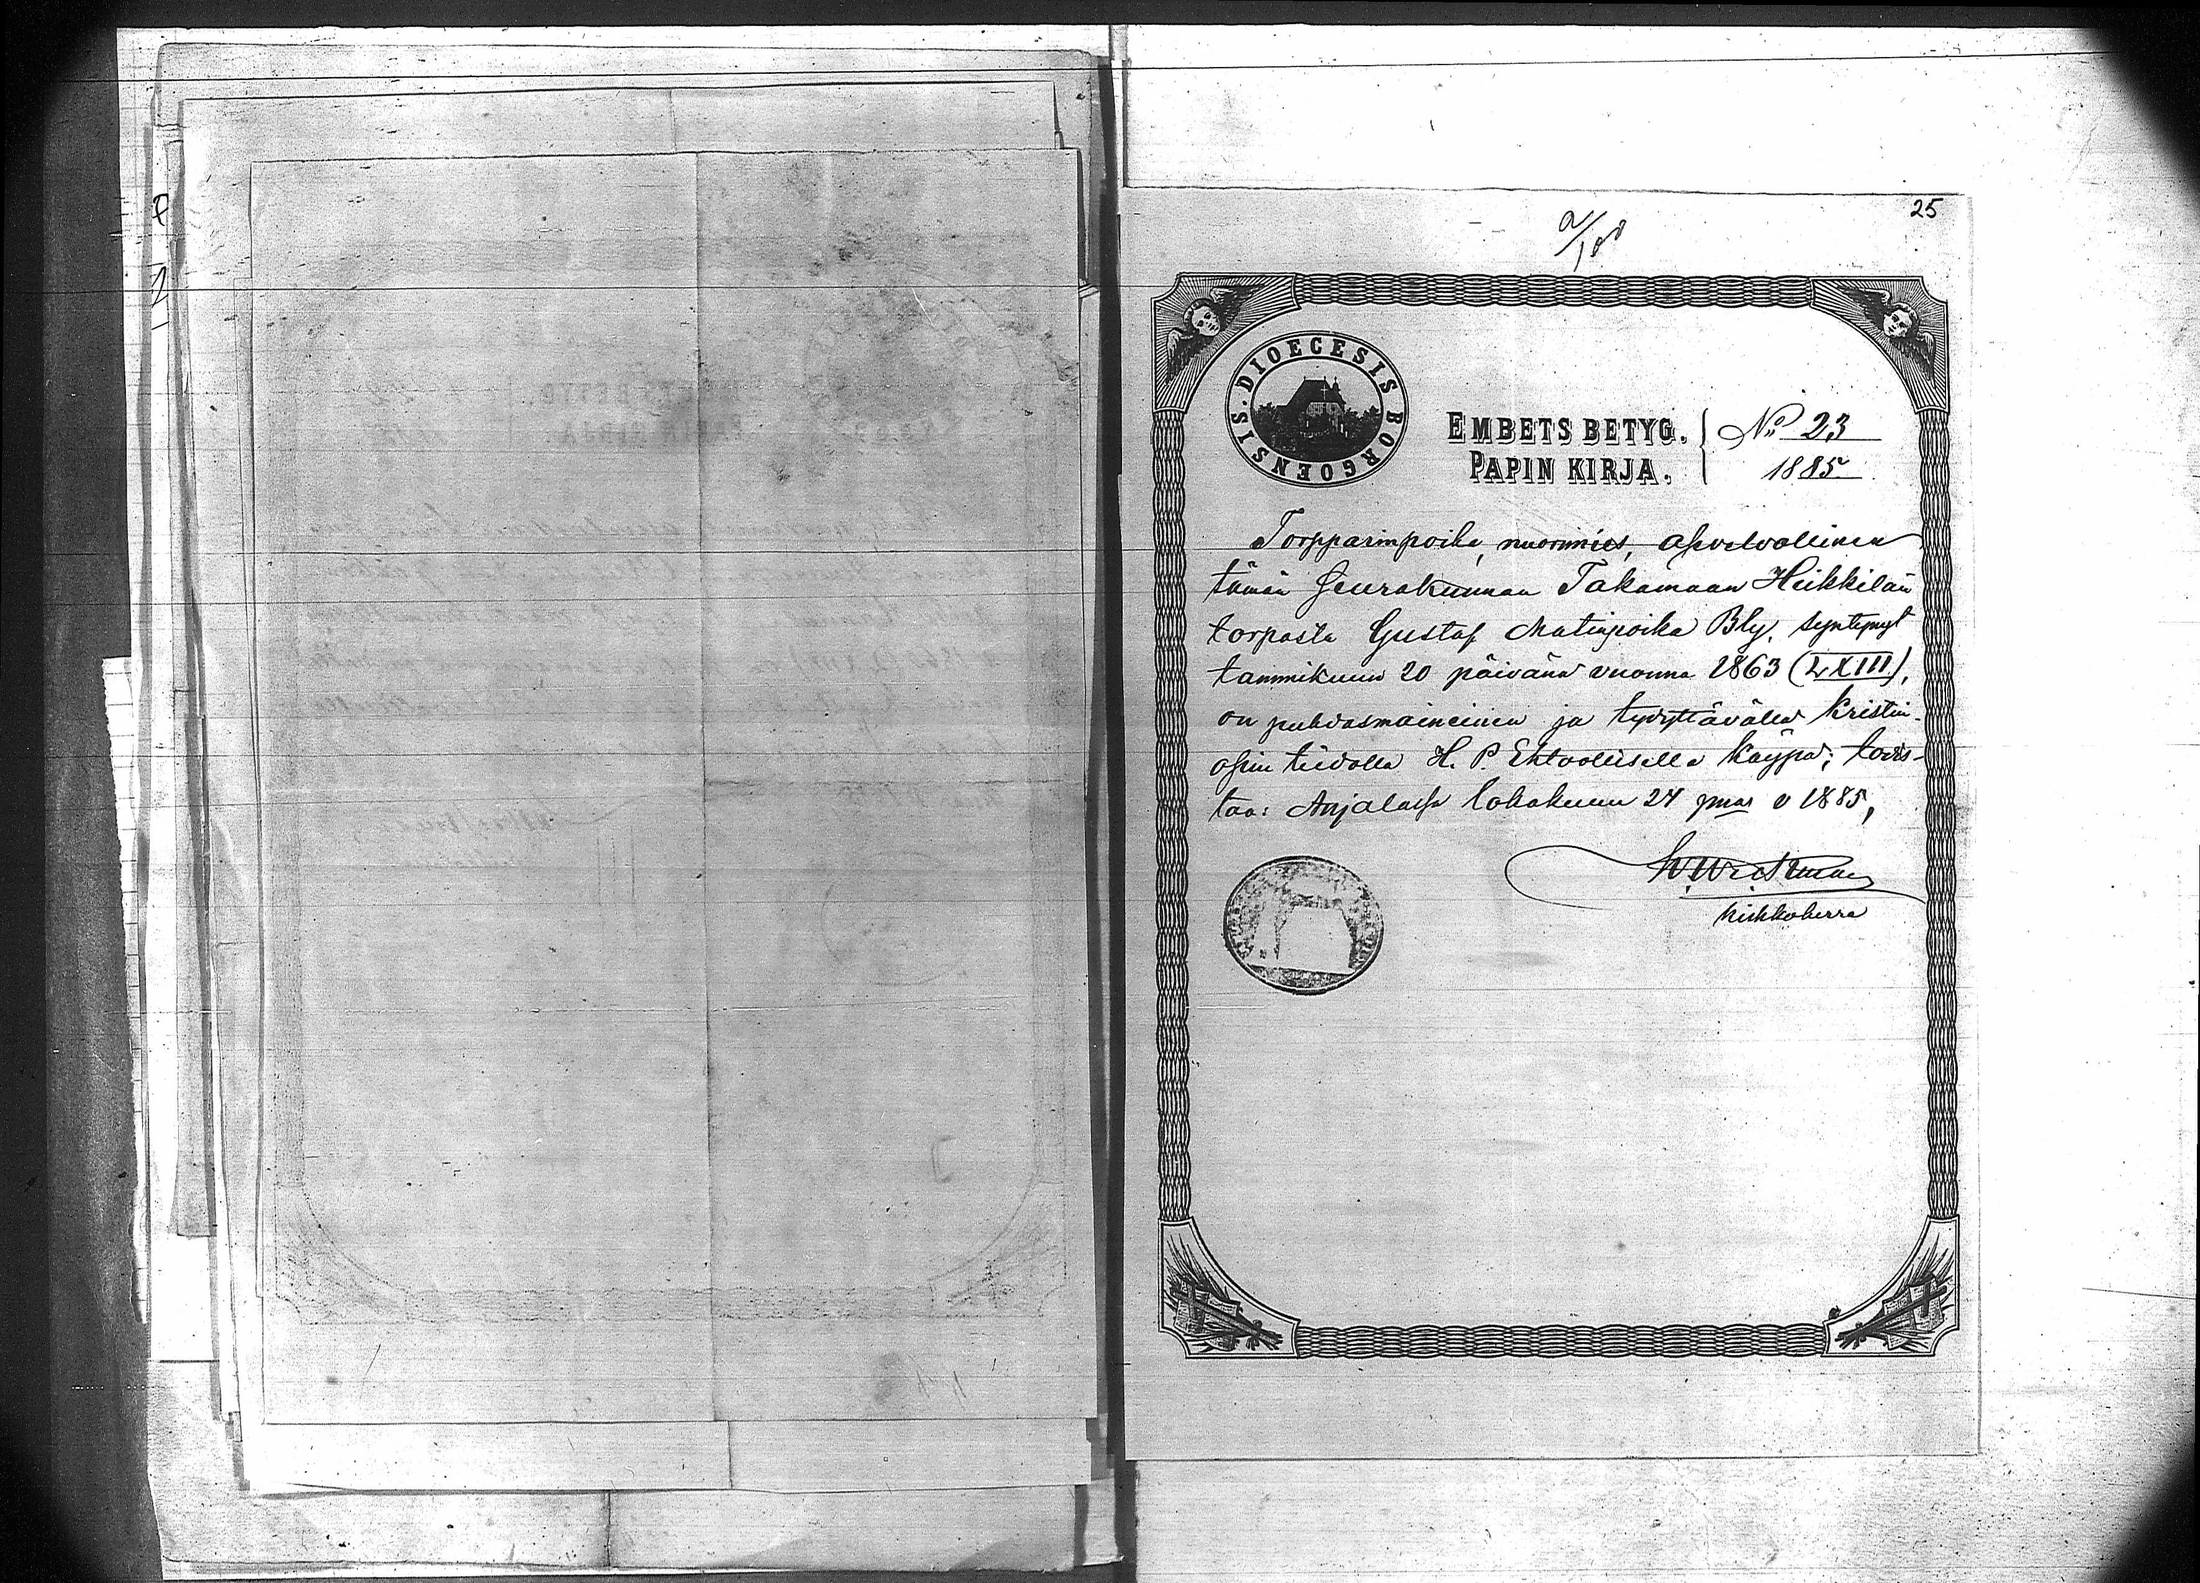 25
a/100
DIOECESIS BORGOENSIS.
EMBETS BETYG. No 23
PAPIN KIRJA. 1885.
Torpparinpoika, nuorimies, asevelvollinen
tämän Seurakunnan Takamaan Heikkilän
torpasta Gustaf Matinpoika Bly, syntynyt
tammikuun 20 päivänä vuonna 1863 (LXIII),
on puhdasmaineinen ja tyydyttävällä kristin-
opin tiedolla H. P. Ehtoollisella käypä; todis-
taa: Anjalassa lokakuun 24 pnä v 1885,
kirkkoherra